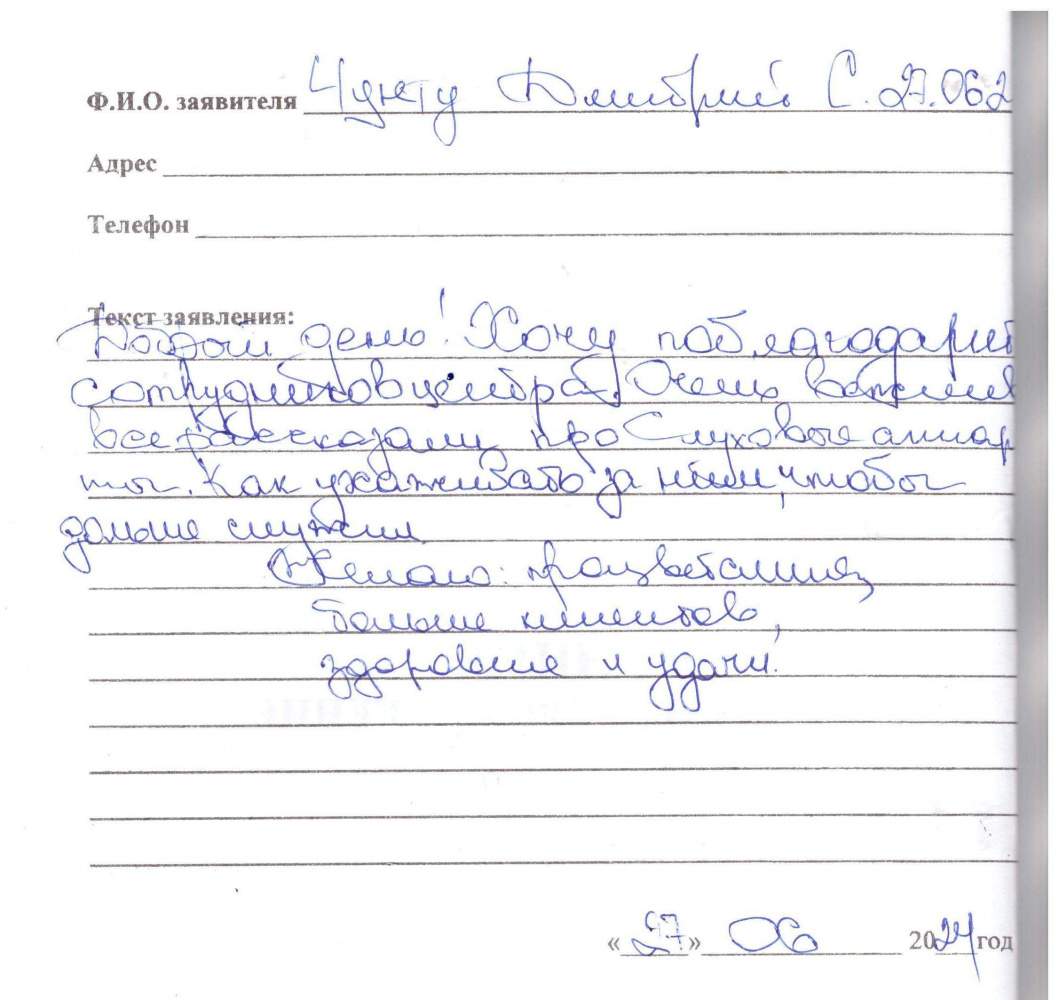 Ф.И.О. заявителя Чунту Дмитрий С. 27.062
Адрес
Телефон
Текст заявления:
Добрый день! Хочу поблагодарит
сотрудников центра. Очень вежлив
все рассказали про Слуховые аппар
ты. Как ухаживать за ними, чтобы
дольше служили
Желаю: процветания,
больше клиентов,
здоровье и удачи.
«27» 06 2024 год